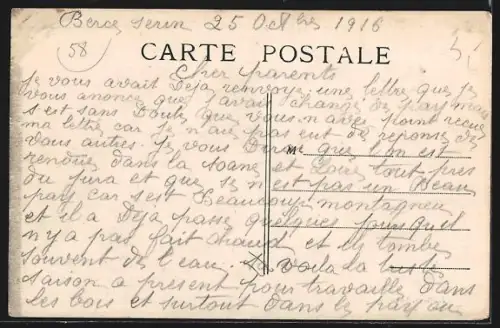 25 Octbre 1916
58
CARTE POSTALE
Cher parents
Je vous avait Deja renvoyé une lettre que je
vous anonce que j'avait changé de pay mais
s est sans Doute que vous n aves point recu
ma lettre car je n ai pas eut de reponse de
vous autres. Je vous Dirse que l'on est
rendue dans la soane et Loire tout pres
du jura et que se n est pas un Beau
pay car s est Beaucoup montagneu
et il a Deja passé quelques jours qu il
n y a pas fait chaud et il tombe
souvent de l eau. voila la triste
saison a present pour travaillé dans
les bois et surtout dans le pay ou